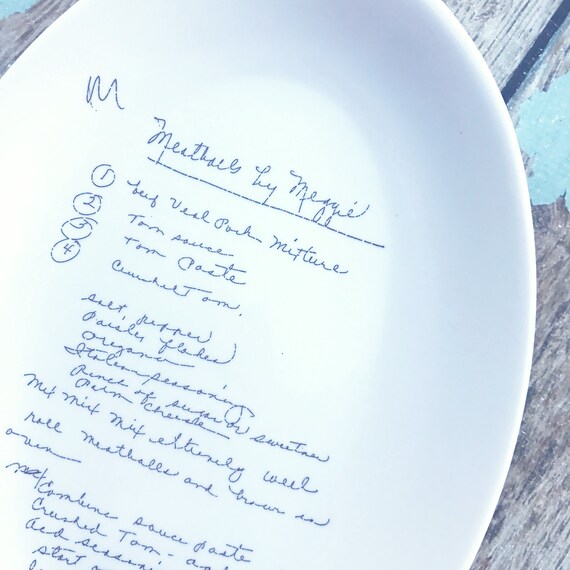 M
Meatballs by Meggie
① beef Veal Pork Mixture
② Tom sauce
③ Tom Paste
④ Crushed Tom.
salt, pepper
Parsley flakes
oregano
Italian seasoning
Pinch of sugar or sweetner
Parm cheese
Mix Mix Mix extremely well
roll meatballs and brown in
oven
Combine sauce paste
Crushed Tom. and
add season
start